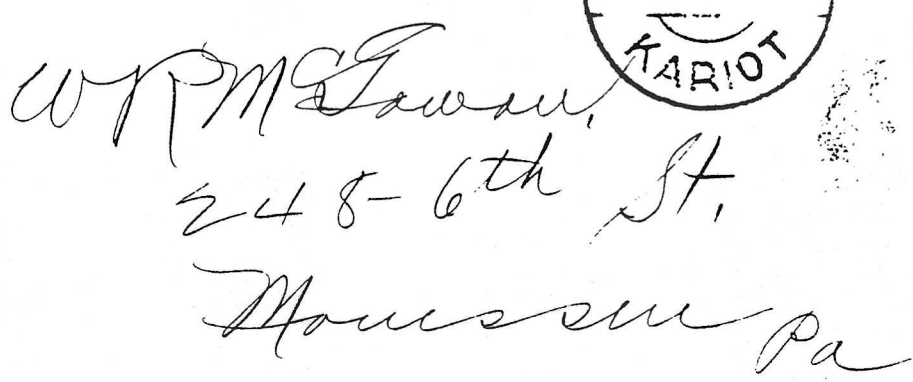 KARIOT
W R McGowan,
248-6th St.
Monessen Pa